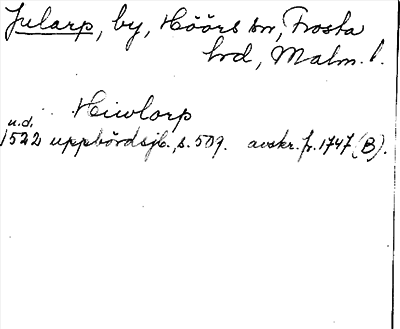 Jularp, by, Höörs sn, Frosta
hrd, Malm. l.
Hiwlorp
u.d.
1522 uppbördsjb., s. 509. avskr. fr. 1747 (B).